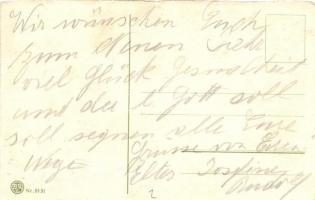 Wir wünschen Euch
zum Neuen Jahr
viel Glück Gesundheit
und der l. Gott soll
soll segnen alle Eure
Wege
Grüsse von Euren
Eltern Josefine
Rudolf
Nr. 8131
2